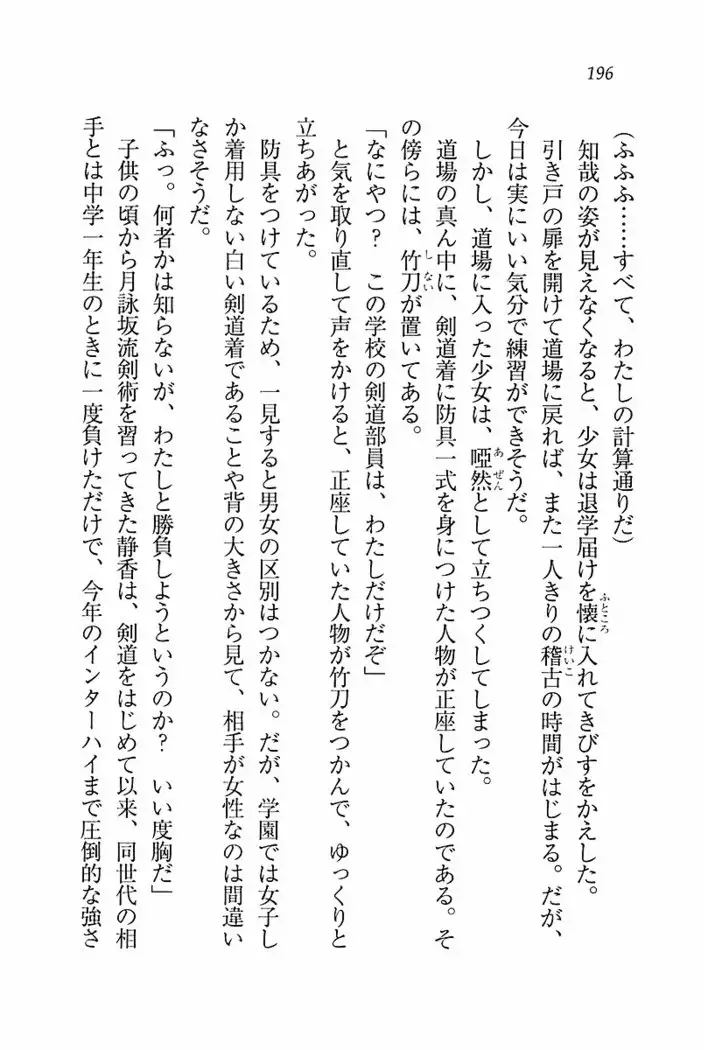 196
(ふふふ……すべて、わたしの計算通りだ)
知哉の姿が見えなくなると、少女は退学届けを懐に入れてきびすをかえした。
引き戸の扉を開けて道場に戻れば、また一人きりの稽古の時間がはじまる。だが、
今日は実にいい気分で練習ができそうだ。
しかし、道場に入った少女は、啞然として立ちつくしてしまった。
道場の真ん中に、剣道着に防具一式を身につけた人物が正座していたのである。そ
の傍らには、竹刀が置いてある。
「なにやつ?　この学校の剣道部員は、わたしだけだぞ」
と気を取り直して声をかけると、正座していた人物が竹刀をつかんで、ゆっくりと
立ちあがった。
防具をつけているため、一見すると男女の区別はつかない。だが、学園では女子し
か着用しない白い剣道着であることや背の大きさから見て、相手が女性なのは間違い
なさそうだ。
「ふっ。何者かは知らないが、わたしと勝負しようというのか?　いい度胸だ」
子供の頃から月詠坂流剣術を習ってきた静香は、剣道をはじめて以来、同世代の相
手とは中学一年生のときに一度負けただけで、今年のインターハイまで圧倒的な強さ